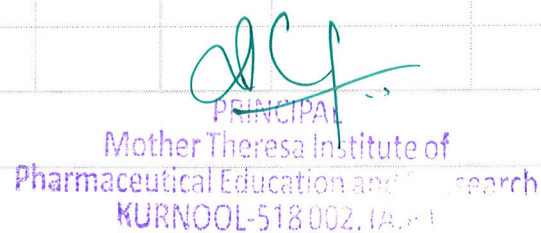 PRINCIPAL
Mother Theresa Institute of
Pharmaceutical Education and search
KURNOOL-518 002. (A.P.)